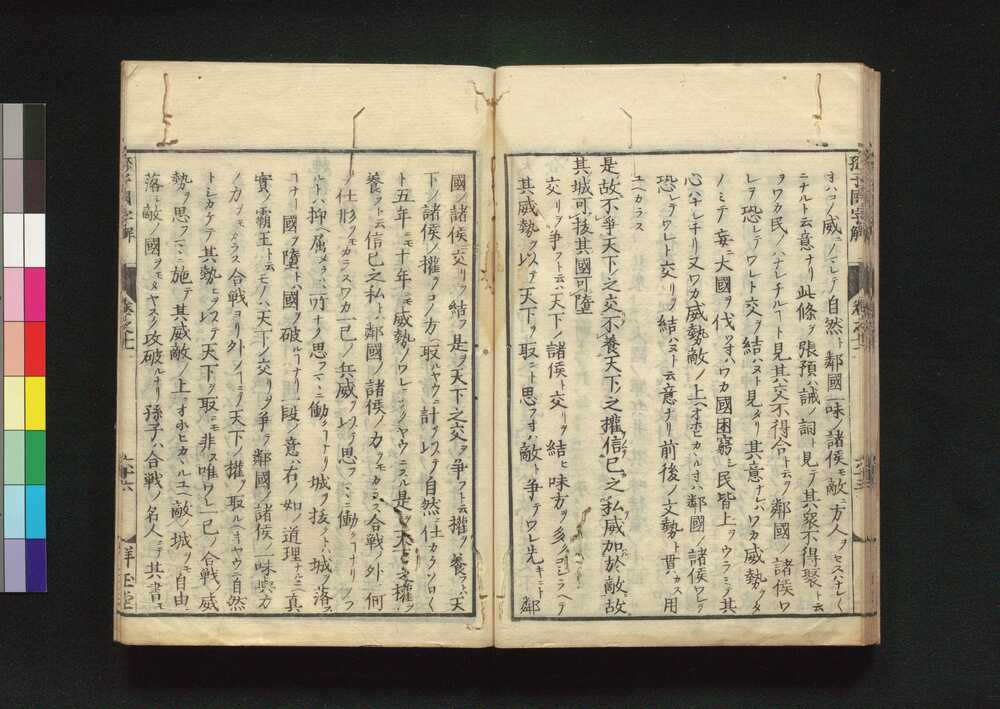 ヲハコノ威ニヲソレテ自然ト鄰國一味ノ諸侯モ敵ニ方人ヲセスハナレ〱
ニナルト云意ナリ此條ヲ張預ハ誡ノ詞ト見テ其衆不得聚ト云
ヲワカ民ノハナレチルコト見其交不得合ト云ヲ鄰國ノ諸侯ワ
レヲ恐レテワレト交ヲ結ハヌト見タリ其意ナレハワカ威勢ヲタ
ノミテ妄ニ大國ヲ伐ツキハワカ國困窮シ民皆上ヲウラミ其
心ハナレチリ又ワカ威勢敵ノ上ニオホヒカヽルキハ鄰國ノ諸侯ワレヲ
恐レテワレト交リヲ結ハスト云意ナリ前後ノ文勢ト貫ハカス用
ユヘカラス
是故不爭天下之交不養天下之權信己之私威加於敵故
其城可拔其國可墮
交リヲ爭フト云ハ天下ノ諸侯ト交リヲ結ヒ味方ヲ多クコシラヘテ
其威勢ヲ以テ天下ヲ取ント思フキハ敵ト爭テワレ先キニト鄰
國ノ諸侯ニ交リヲ結フ是ヲ天下之交ヲ爭フト云權ヲ養フトハ天
下ノ諸侯ノ權ヲコノ方ニ取ルヤウニ計ヲ以テ自然ニ仕カラソロ〱
ト五年ニモ十年ニモ威勢ノワレニツクヤウニスル是ヲ天下之權ヲ
養フト云信己之私トハ鄰國ノ諸侯ノカヲモカラス合戰ノ外ニ何
ノ仕形ヲモカラスワカ一己ノ兵威ヲ以テ思フマヽニ働クコナリノフ
ルトハ抑ヘ属メラルヽ所ナク思フマヽニ働クコトナリ城ヲ拔クトハ城ヲ落ス
コナリ國ヲ墮トハ國ヲ破ルコナリ一段ノ意ハ右ノ如ノ道理ナルユヘニ眞
實ノ霸王ト云モノハ天下ノ交リヲ爭ヲ鄰國ノ諸侯ノ一味與力
ノカヲモカラス合戰ヨリ外ノコニテ天下ノ權ヲ取ルヘキヤウニ自然
トシカケテ其勢ヒヲ以テ天下ヲ取ニモ非ス唯ワレ一己ノ合戰ノ威
勢ヲ思フマヽニ施テ其威敵ノ上ニオホヒカヽルユヘ敵ノ城ヲモ自由ニ
落シ敵ノ國ヲモタヤスク攻破ルナリ孫子ハ合戰ノ名人ニテ其書モ
孫子國字解
卷之十一